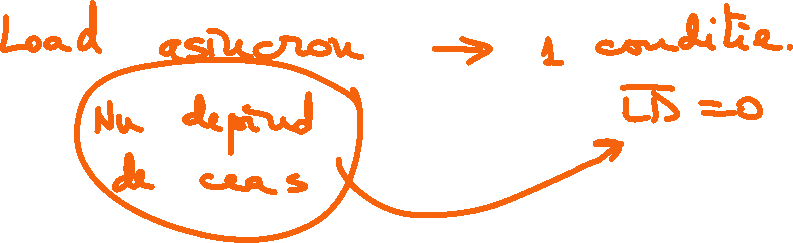 Load asincron → 1 conditie.
Nu depind
de ceas
L̅D̅ = 0